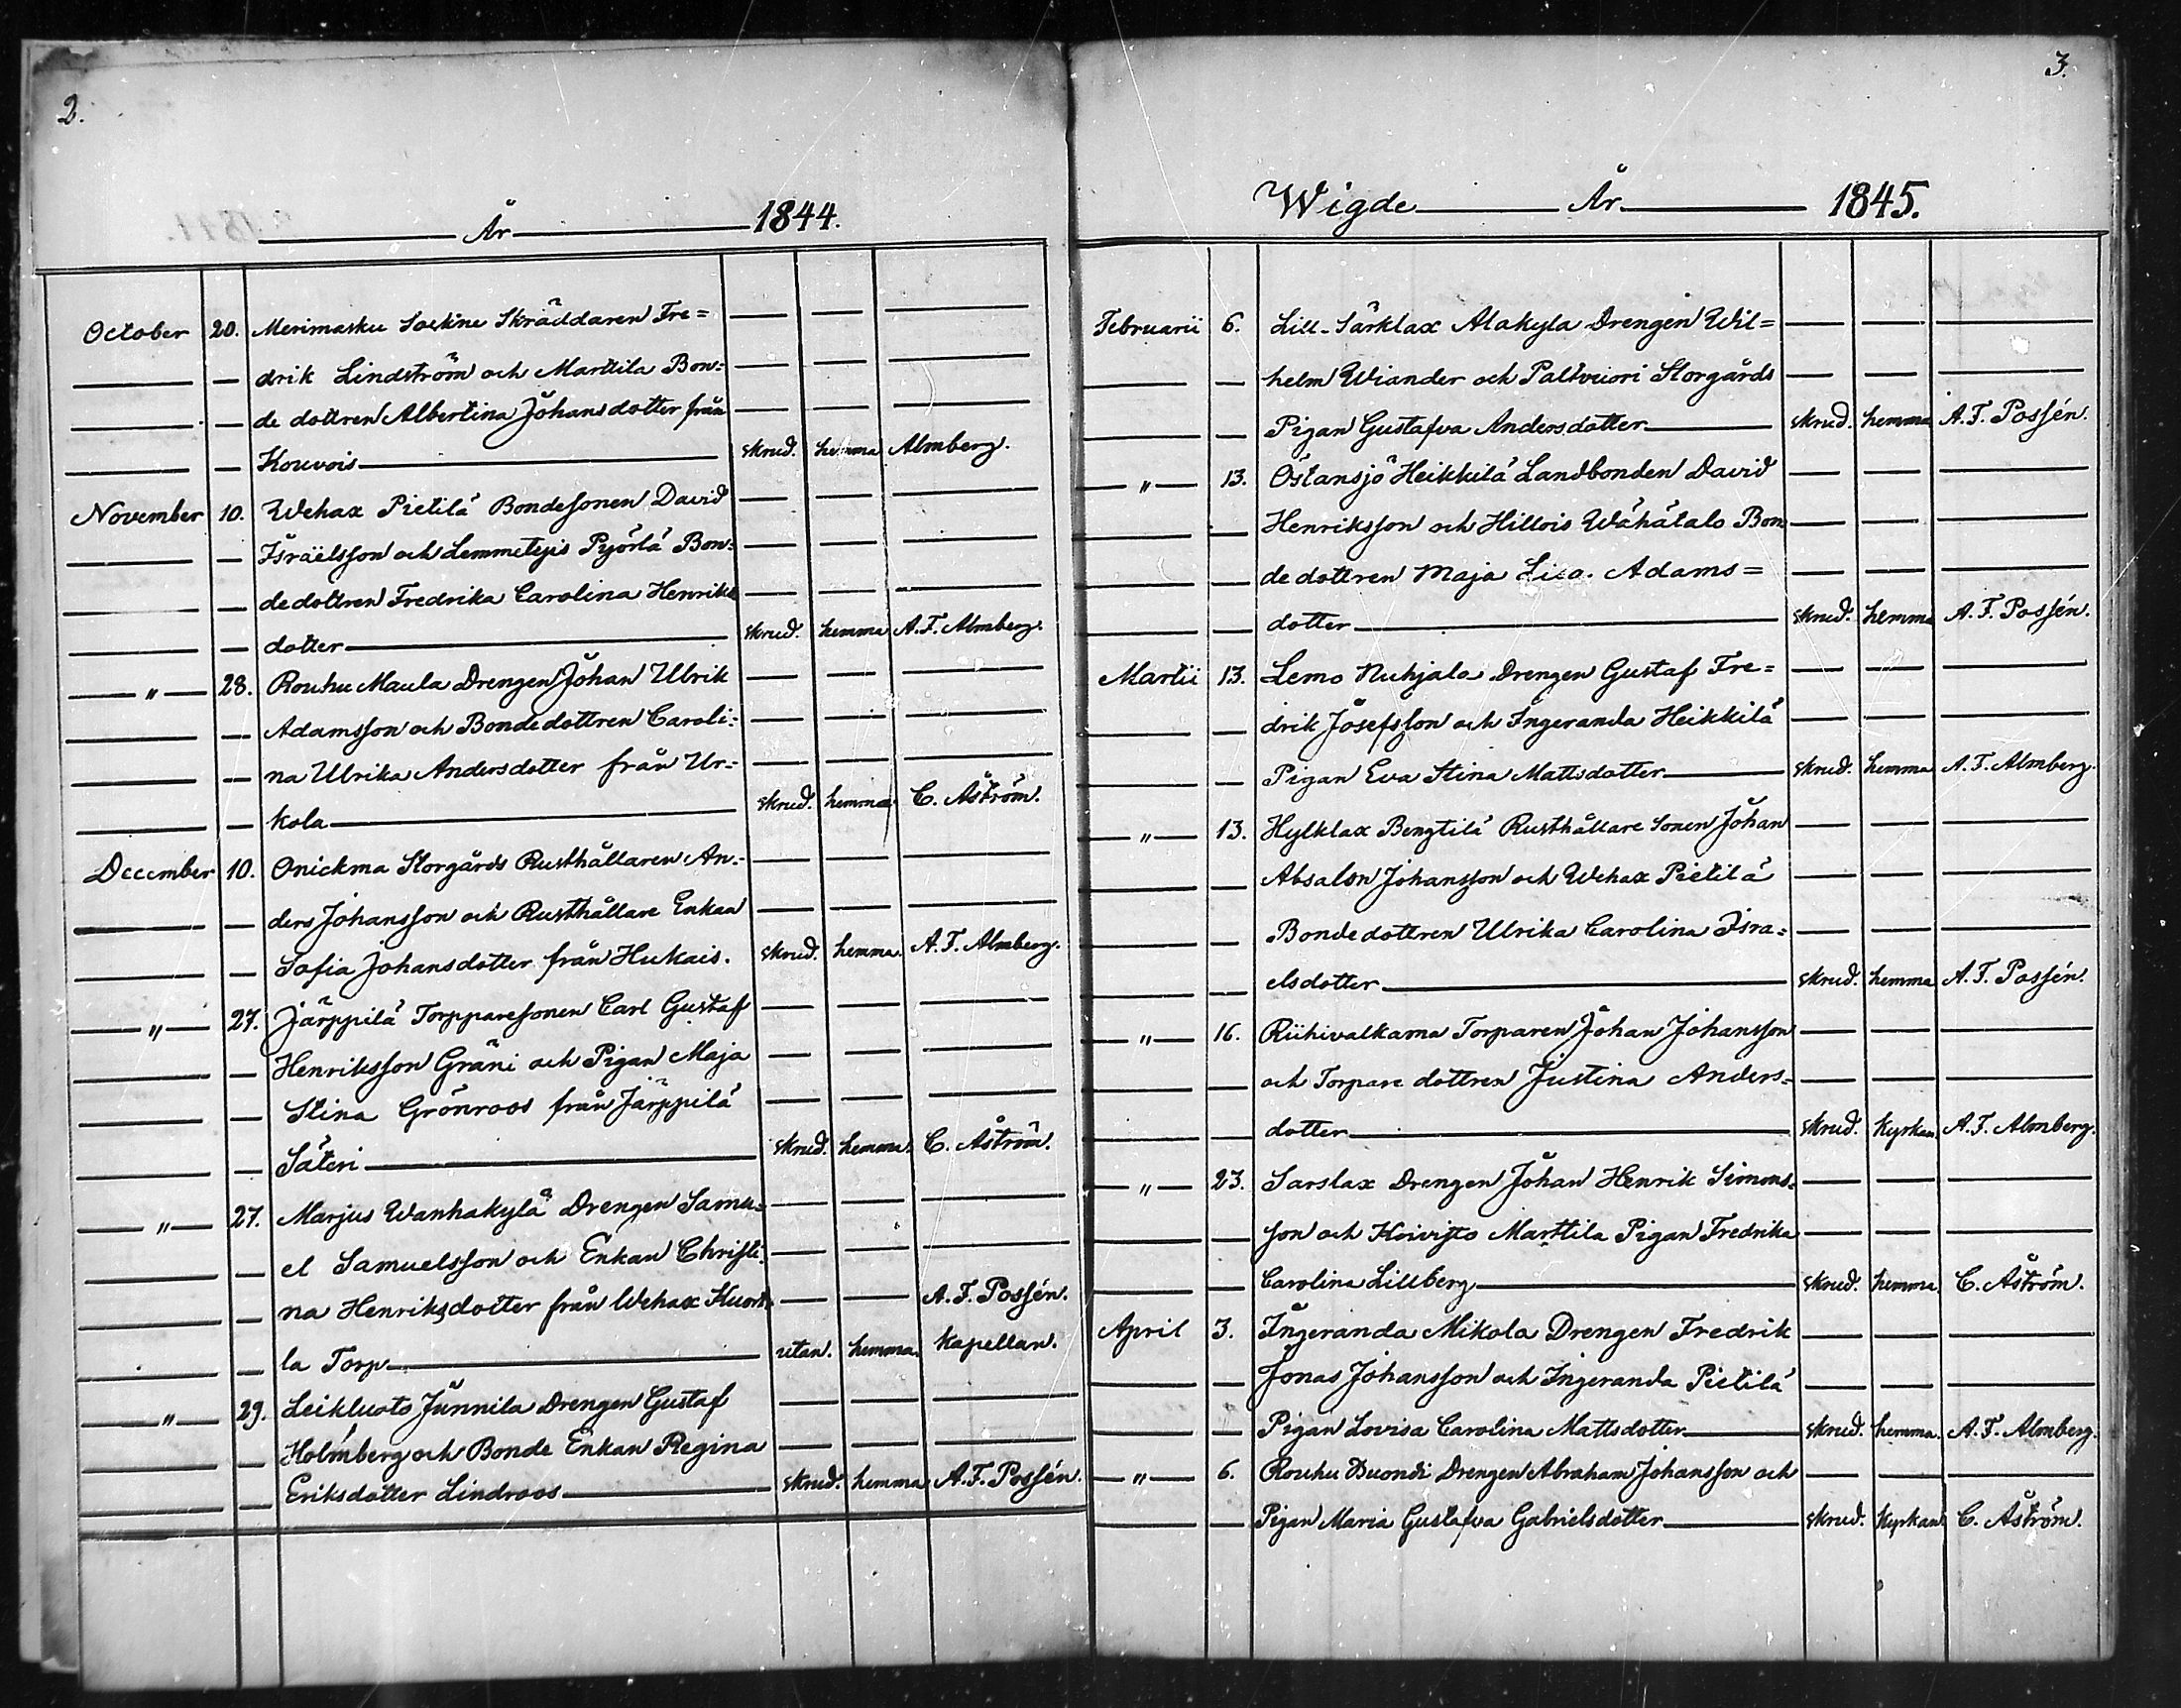 2.
År 1844.
October 20. Merimasku Sockne Skräddaren Fre=
drik Lindström och Marttila Bon=
de dottren Albertina Johansdotter från
Kouvois skrud. hemma Almberg.
November 10. Wehax Pietilä Bondesonen David
Israëlsson och Lemmetyis Pyörlä Bon=
dedottren Fredrika Carolina Henriks
dotter skrud. hemma A. F. Almberg.
" 28. Rouhu Maula Drengen Johan Ulrik
Adamsson och Bondedottren Caroli=
na Ulrika Andersdotter från Ur=
kola skrud. hemma C. Åström.
December 10. Onickma Storgårds Rusthållaren An=
ders Johansson och Rusthållare Enkan
Sofia Johansdotter från Hukais. skrud. hemma. A. F. Almberg.
" 27. Järppilä Torpparesonen Carl Gustaf
Henriksson Gräni och Pigan Maja
Stina Grönroos från Järppilä
Säteri skrud. hemma. C. Åström.
" 27. Marjus Wanhakylä Drengen Samu=
el Samuelsson och Enkan Christi=
na Henriksdotter från Wehax Kuort A. F. Possén.
la Torp utan. hemma. Kapellan.
" 29. Leikluoto Junnila Drengen Gustaf
Holmberg och Bonde Enkan Regina
Eriksdotter Lindroos skrud. hemma A. F. Possén.
3.
Wigde År 1845.
Februarii 6. Lill-Särklax Alakyla Drengen Wil=
helm Wiander och Paltvuori Storgårds
Pigan Gustafva Andersdotter skrud. hemma A. F. Possén.
" 13. Östansjö Heikkilä Landbonden David
Henriksson och Hillois Wähätalo Bon
dedottren Maja Lisa Adams=
dotter skrud. hemma A. F. Possén.
Martii 13. Lemo Nuhjala Drengen Gustaf Fre=
drik Josefsson och Ingeranda Heikkilä
Pigan Eva Stina Mattsdotter skrud. hemma A. F. Almberg.
" 13. Hylklax Bengtilä Rusthållare Sonen Johan
Absalon Johansson och Wehax Pietilä
Bondedottren Ulrika Carolina Isra=
elsdotter skrud. hemma A. F. Possén.
" 16. Riihivalkama Torparen Johan Johansson
och Torpare dottren Justina Anders=
dotter skrud. Kyrkan. A. F. Almberg.
" 23. Sarslax Drengen Johan Henrik Simons=
son och Koivisto Marttila Pigan Fredrika
Carolina Lillberg skrud. hemma. C. Åström.
April 3. Ingeranda Mikola Drengen Fredrik
Jonas Johansson och Ingeranda Pietilä
Pigan Lovisa Carolina Mattsdotter skrud. hemma. A. F. Almberg.
" 6. Rouhu Duondi Drengen Abraham Johansson och
Pigan Maria Gustafva Gabrielsdotter skrud. Kyrkan C. Åström.